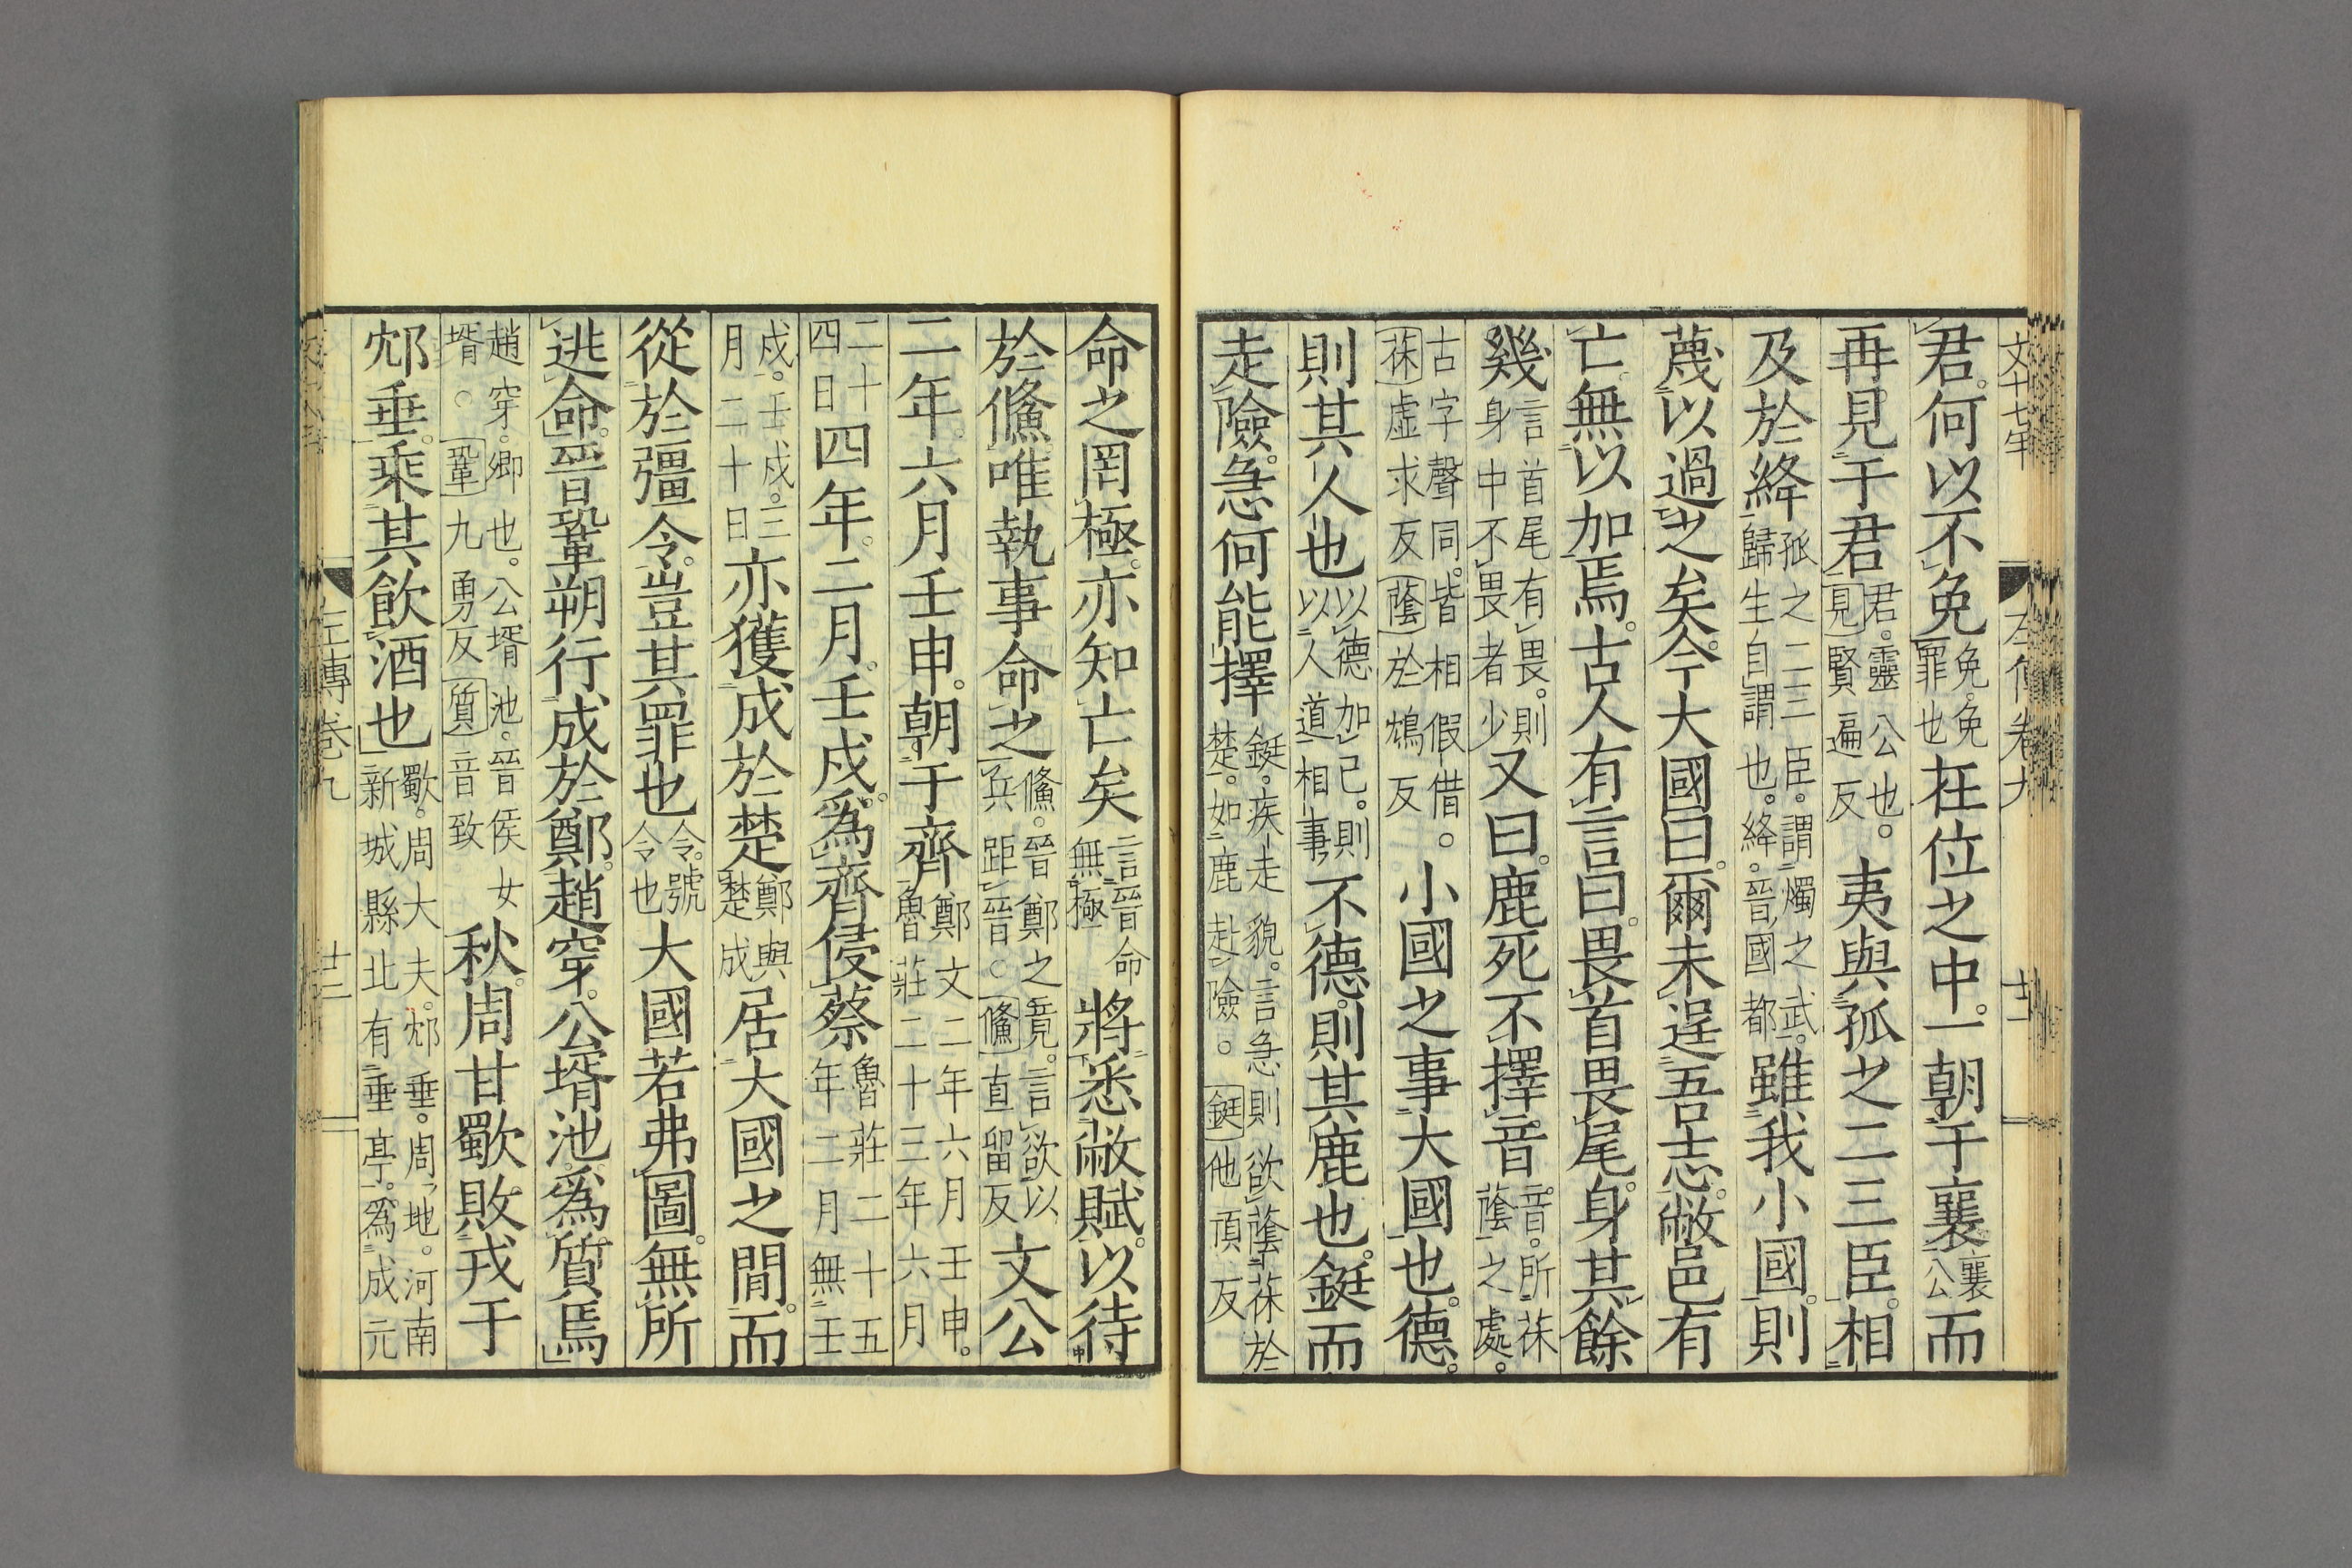 文十七年
左傳卷九
廿二
君何以不免免免罪也在位之中一朝于襄襄公而
再見于君君靈公也見賢遍反夷與孤之二三臣相
及於絳孤之二三臣謂燭之武歸生自謂也絳晉國都雖我小國則
蔑以過之矣今大國曰爾未逞吾志敝邑有
亡無以加焉古人有言曰畏首畏尾身其餘
幾言首尾有畏則身中不畏者少又曰鹿死不擇音音所茠蔭之處
古字聲同皆相假借茠虛求反蔭於鴆反小國之事大國也德
則其人也以德加己則以人道相事不德則其鹿也鋌而
走險急何能擇鋌疾走貌言急則欲蔭茠於楚如鹿赴險鋌他頂反
命之罔極亦知亡矣言晉命無極將悉敝賦以待
於鯈唯執事命之鯈晉鄭之竟言欲以兵距晉鯈直留反文公
二年六月壬申朝于齊鄭文二年六月壬申魯莊二十三年六月
二十四日四年二月壬戌爲齊侵蔡魯莊二十五年二月無壬
戌壬戌三月二十日亦獲成於楚鄭與楚成居大國之間而
從於彊令豈其罪也令號令也大國若弗圖無所
逃命晉鞏朔行成於鄭趙穿公壻池爲質焉
趙穿卿也公壻池晉侯女壻鞏九勇反質音致秋周甘歜敗戎于
邥垂乘其飲酒也歜周大夫邥垂周地河南新城縣北有垂亭爲成元
左傳卷九
廿二